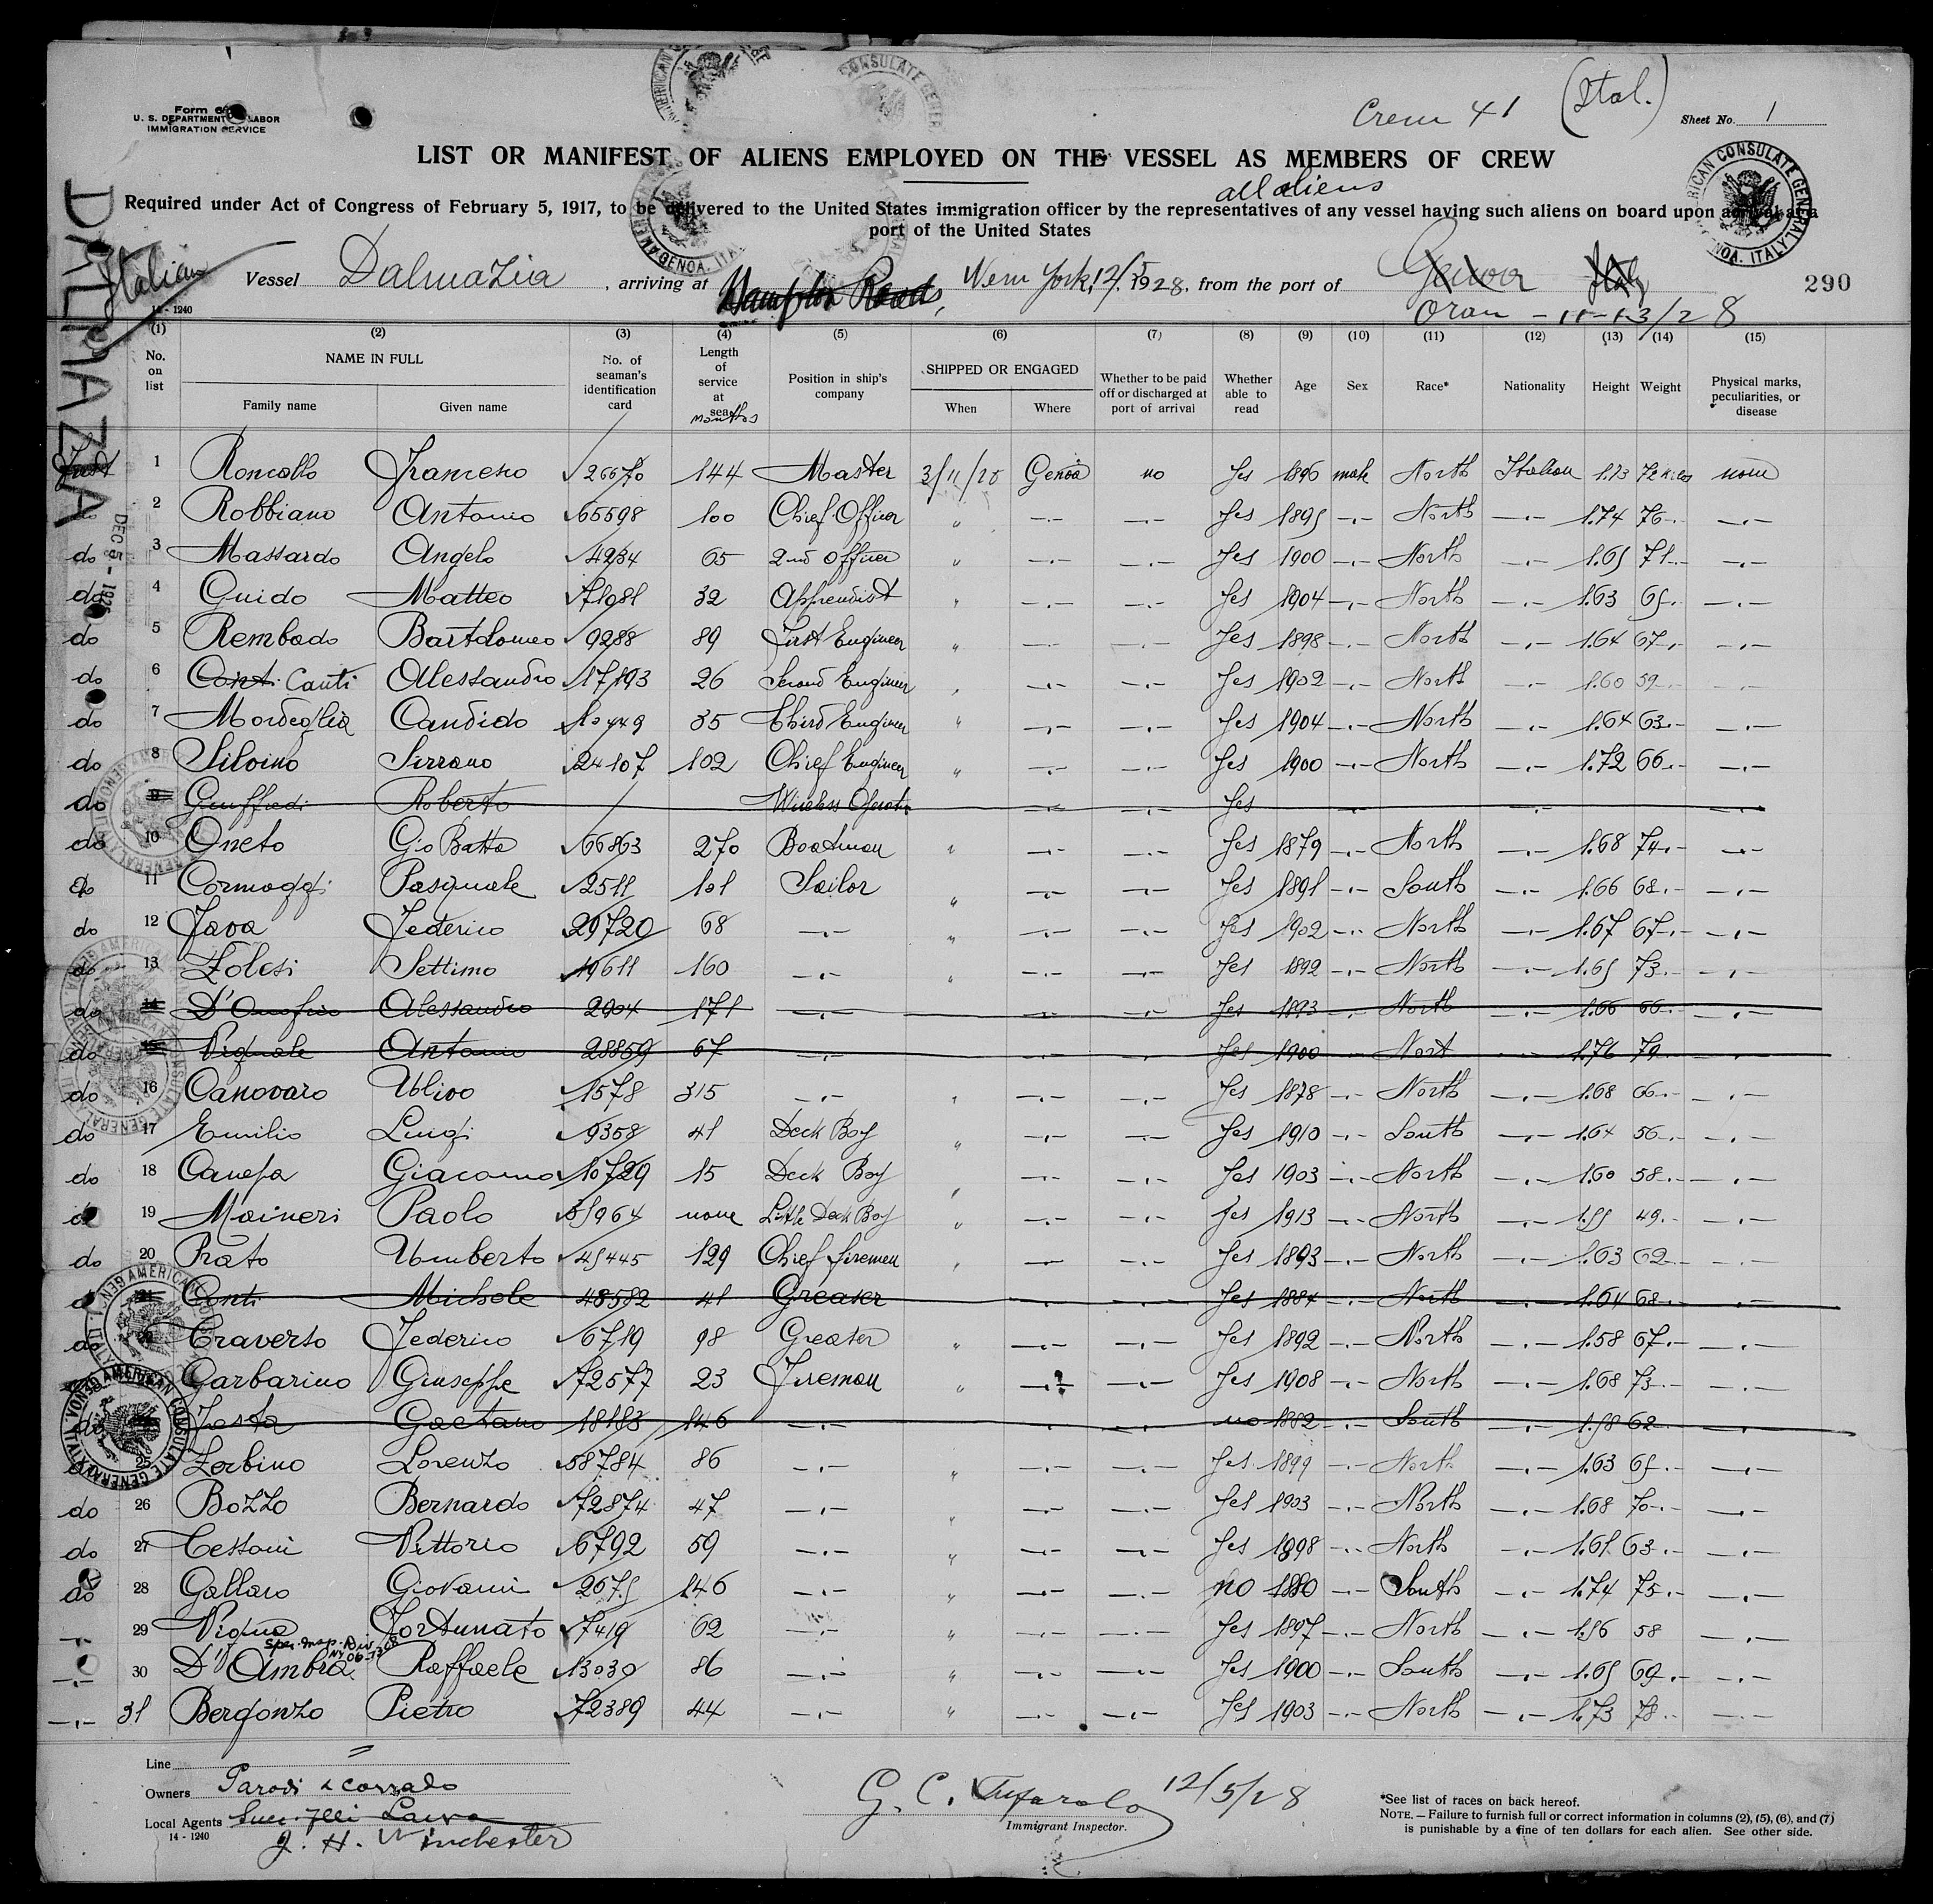 Form 6
U. S. DEPARTMENT LABOR
IMMIGRATION SERVICE
Crew 41 (Ital.)
Sheet No. 1
LIST OR MANIFEST OF ALIENS EMPLOYED ON THE VESSEL AS MEMBERS OF CREW
all aliens
Required under Act of Congress of February 5, 1917, to be delivered to the United States immigration officer by the representatives of any vessel having such aliens on board upon arrival at a
port of the United States
DALMAZIA
DEC 5 - 1928
Italian Vessel Dalmazia, arriving at Hampton Roads, New York, 12/5 1928, from the port of Genoa Italy
Oran - 11-13/28
290
14 - 1240
(1) (2) (3) (4) (5) (6) (7) (8) (9) (10) (11) (12) (13) (14) (15)
No. on list NAME IN FULL Family name Given name No. of seaman's identification card Length of service at sea months Position in ship's company SHIPPED OR ENGAGED When Where Whether to be paid off or discharged at port of arrival Whether able to read Age Sex Race* Nationality Height Weight Physical marks, peculiarities, or disease
1 Roncallo Francesco 26670 144 Master 3/11/28 Genoa no Yes 1896 male North Italian 1.73 72 kilos none
do 2 Robbiano Antonio 65598 100 Chief Officer " —.— —.— Yes 1895 —.— North —.— 1.74 76 —.—
do 3 Massardo Angelo 4234 65 2nd Officer " —.— —.— Yes 1900 —.— North —.— 1.65 71 —.—
do 4 Guido Matteo 71981 32 Apprendist " —.— —.— Yes 1904 —.— North —.— 1.63 65 —.—
do 5 Rembado Bartolomeo 9288 89 First Engineer " —.— —.— Yes 1898 —.— North —.— 1.64 67 —.—
do 6 Conti Canti Alessandro 17193 26 Second Engineer " —.— —.— Yes 1902 —.— North —.— 1.60 59 —.—
do 7 Mordeglia Candido 35 Third Engineer " —.— —.— Yes 1904 —.— North —.— 1.64 63 —.—
do 8 Silvino Serrano 24107 102 Chief Engineer " —.— —.— Yes 1900 —.— North —.— 1.72 66 —.—
do 9 Giuffredi Roberto Wireless Operator —.— —.— Yes —.— —.— —.—
do 10 Oneto Gio Batta 66863 270 Boatman " —.— —.— Yes 1879 —.— North —.— 1.68 74 —.—
do 11 Cormaggi Pasquale 2511 101 Sailor " —.— —.— Yes 1891 —.— South —.— 1.66 68 —.—
do 12 Fava Federico 29720 68 —.— " —.— —.— Yes 1902 —.— North —.— 1.67 67 —.—
do 13 Zolesi Settimo 19611 160 —.— " —.— —.— Yes 1892 —.— North —.— 1.65 73 —.—
do 14 D'Onofrio Alessandro 2904 171 —.— —.— —.— Yes 1893 —.— North —.— 1.66 66 —.—
do 15 Vignale Antonio 28859 67 —.— —.— —.— Yes 1900 —.— Nort —.— 1.76 79 —.—
do 16 Canovaro Ulivo 1578 315 —.— " —.— —.— Yes 1878 —.— North —.— 1.68 66 —.—
do 17 Emilio Luigi 9358 41 Deck Boy " —.— —.— Yes 1910 —.— South —.— 1.64 56 —.—
do 18 Canepa Giacomo 10729 15 Deck Boy " —.— —.— Yes 1903 —.— North —.— 1.60 58 —.—
do 19 Maineri Paolo none Little Deck Boy " —.— —.— Yes 1913 —.— North —.— 1.55 49 —.—
do 20 Prato Umberto 45445 129 Chief fireman " —.— —.— Yes 1893 —.— North —.— 1.63 62 —.—
21 Conti Michele 48582 41 Greaser —.— —.— Yes 1884 —.— North —.— 1.64 68 —.—
do Traverso Federico 6719 98 Greaser " —.— —.— Yes 1892 —.— North —.— 1.58 67 —.—
Garbarino Giuseppe 72577 23 Fireman " —.— —.— Yes 1908 —.— North —.— 1.68 73 —.—
do Gaetano 18183 146 —.— —.— —.— no 1882 —.— South —.— 1.58 62 —.—
25 Zerbino Lorenzo 58784 86 —.— " —.— —.— Yes 1899 —.— North —.— 1.63 65 —.—
do 26 Bozzo Bernardo 72874 47 —.— " —.— —.— Yes 1903 —.— North —.— 1.68 70 —.—
do 27 Tessoni Vittorio 6792 59 —.— " —.— —.— Yes 1898 —.— North —.— 1.61 63 —.—
do 28 Gallaro Giovanni 2675 146 —.— " —.— —.— no 1880 —.— South —.— 1.74 75 —.—
—.— 29 Vigna Fortunato 7419 62 —.— " —.— —.— Yes 1897 —.— North —.— 1.56 58 —.—
—.— 30 D'Ambra Raffaele 13039 86 —.— " —.— —.— Yes 1900 —.— South —.— 1.65 69 —.—
—.— 31 Bergonzo Pietro 72389 44 —.— " —.— —.— Yes 1903 —.— North —.— 1.73 78 —.—
Line
Owners Parodi & Corrado
Local Agents
14 - 1240
J. H. Winchester
G. C. 12/5/28
Immigrant Inspector.
*See list of races on back hereof.
NOTE. — Failure to furnish full or correct information in columns (2), (5), (6), and (7)
is punishable by a fine of ten dollars for each alien. See other side.
AMERICAN CONSULATE GENERAL GENOA, ITALY